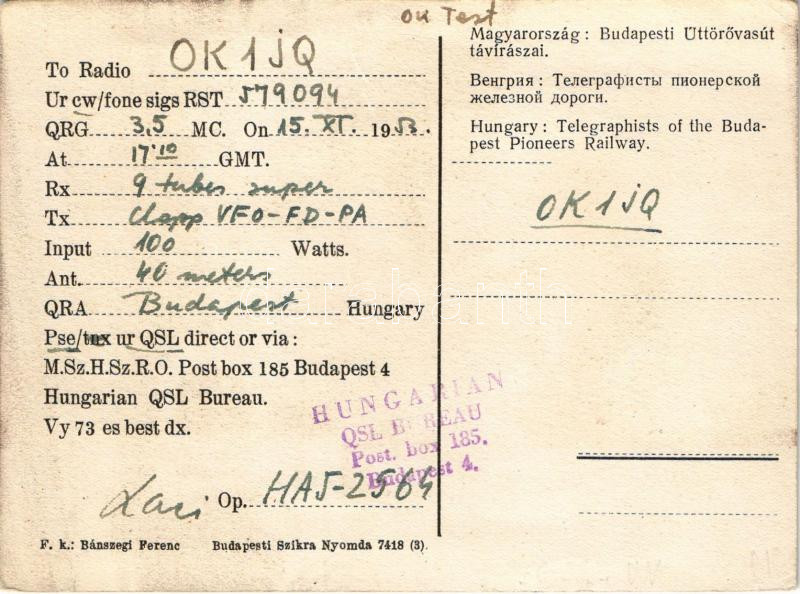 OK Test
To Radio OK1JQ
Ur cw/fone sigs RST 579094
QRG 3,5 MC. On 15. XI. 1953.
At 17'10 GMT.
Rx 9 tubes super
Tx Clapp VFO-FD-PA
Input 100 Watts.
Ant. 40 meters
QRA Budapest Hungary
Pse/tnx ur QSL direct or via:
M.Sz.H.Sz.R.O. Post box 185 Budapest 4
Hungarian QSL Bureau.
Vy 73 es best dx.
Laci Op. HA5-2564
F. k.: Bánszegi Ferenc Budapesti Szikra Nyomda 7418 (3).
HUNGARIAN
QSL BUREAU
Post. box 185.
Budapest 4.
Magyarország: Budapesti Úttörővasút
távírászai.
Венгрия: Телеграфисты пионерской
железной дороги.
Hungary: Telegraphists of the Buda-
pest Pioneers Railway.
OK1JQ